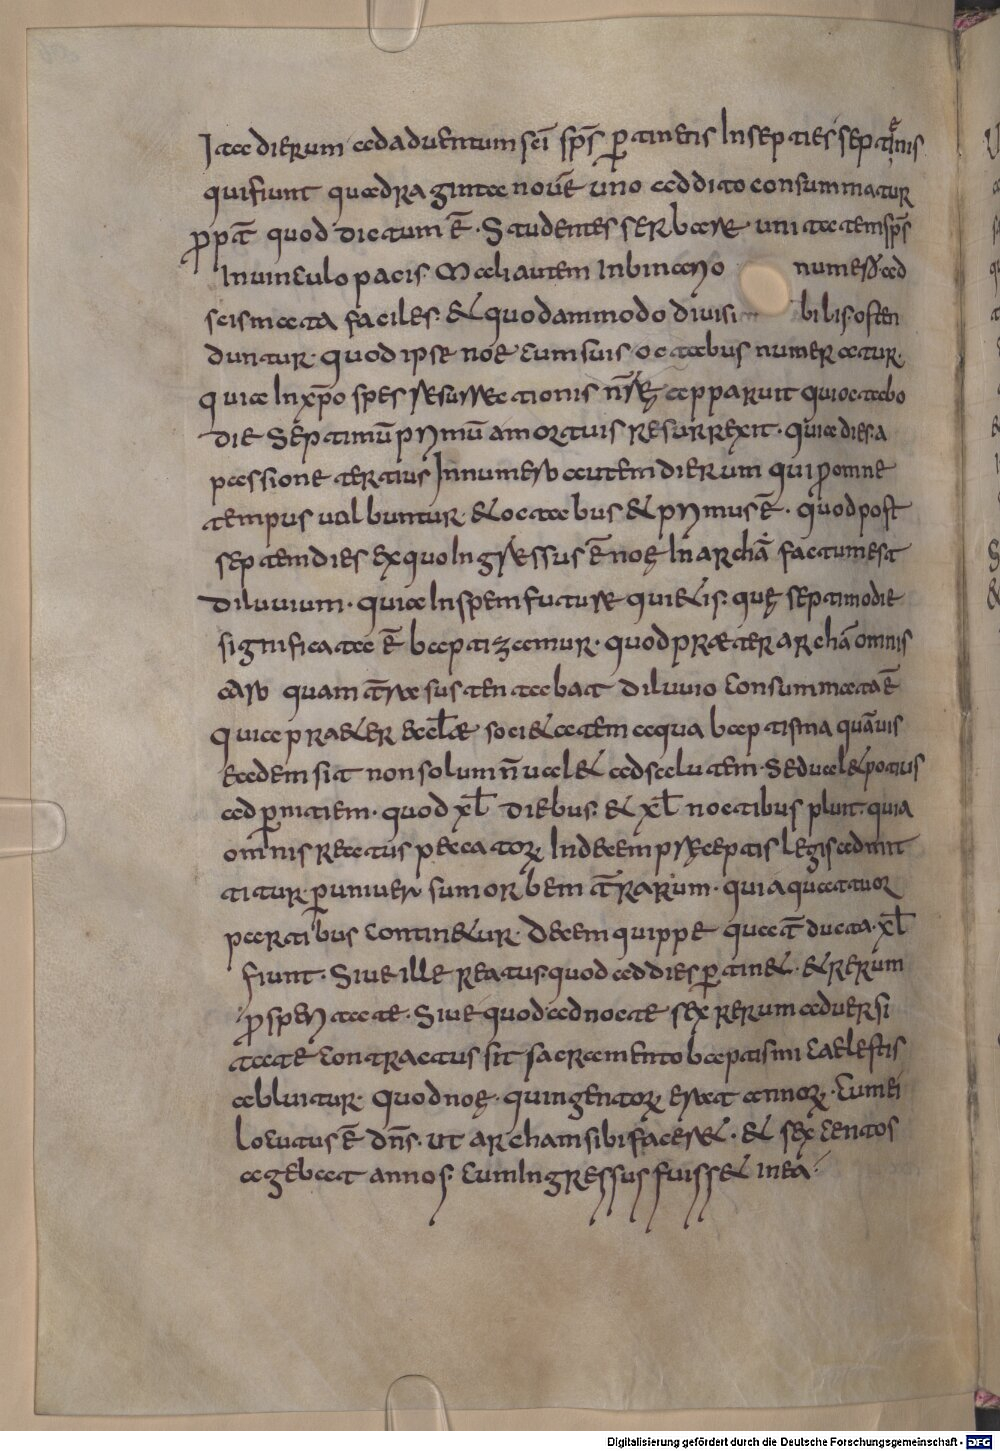 Ita dierum ad aduentum sc̄i sp̄s ꝑtinens In septies septēnis
qui fiunt quadraginta nouē uno addito consummatur
ꝓpt̄ quod dictum ē. Studentes seruare unitatem sp̄s
In uinculo pacis Mali autem In binario numero ad
scismata faciles. & quodammodo diuisibilis. osten
duntur. quod ipse noe cum suis octabus numeratur.
quia In xp̄o spes resurrectionis nr̄ę apparuit qui octabo
die septimū primū a mortuis resurrexit. quia dies. a
passione tertius In numero autem dierum qui ꝓ omne
tempus uolbuntur. & octabus & primus ē. quod post
septem dies ex quo Ingressus ē noę In archā factum est
diluuium. quia In spem future qui&is. quę septimo die
significata ē baptizamur. quod præter archā omnis
caro quam t̄ra sustentabat diluuio consummata ē
quia pra&er eccl̄æ soci&atem aqua baptisma quāuis
eadem sit non solum n̄ ual& ad salutem. sed ual& potius
ad ꝑnitiem. quod xl̄ diebus. & xl̄ noctibus pluit. quia
omnis reatus peccatoꝝ In decem pręceptis legis admit
titur. ꝑ uniuersum orbem t̄rarum. qui a quattuor
partibus contin&ur. Decem quippe quat̄ ducta. xl̄
fiunt. Siue ille reatus. quod ad dies ꝑtin&. & rerum
ꝓsperitate. Siue quod ad nocte sex rerum aduersi
tate contractus sit sacramento baptismi caelestis
abluitur. Quod noę. quingentoꝝ erat annoꝝ. cum ei
locutus ē dn̄s. ut archam sibi facer&. & sexcentos
agebat annos. cum Ingressus fuiss& in ea.
Digitalisierung gefördert durch die Deutsche Forschungsgemeinschaft - DFG